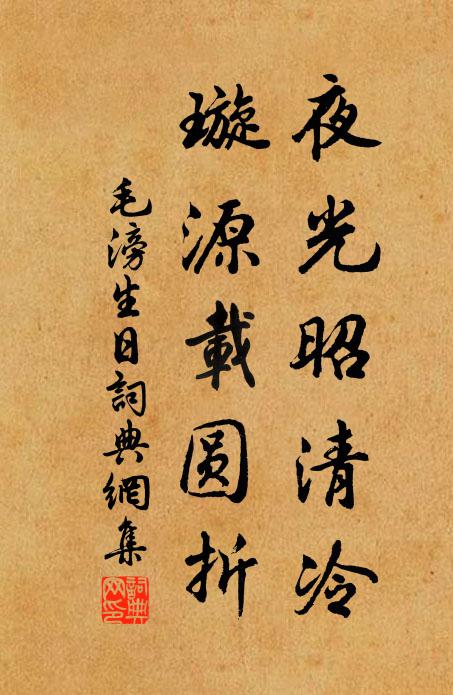 夜光昭清冷
璇源載圆折
毛滂生日詞典網集
詞典
网印